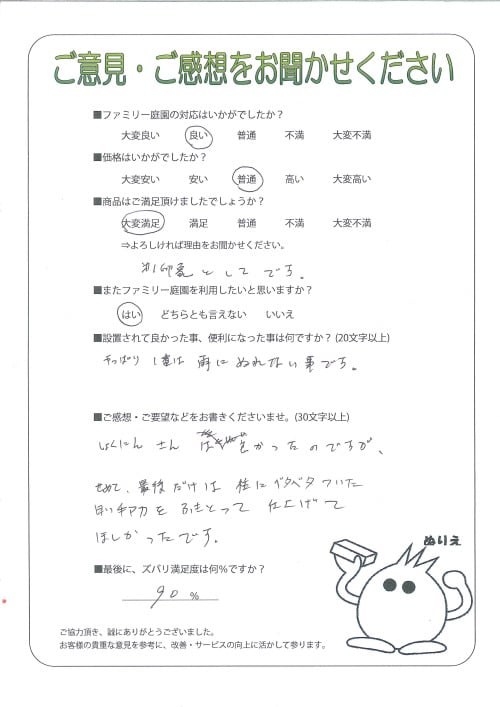 ご意見・ご感想をお聞かせください
■ファミリー庭園の対応はいかがでしたか？
大変良い 良い 普通 不満 大変不満
■価格はいかがでしたか？
大変安い 安い 普通 高い 大変高い
■商品はご満足頂けましたでしょうか？
大変満足 満足 普通 不満 大変不満
⇒よろしければ理由をお聞かせください。
第1印象としてです。
■またファミリー庭園を利用したいと思いますか？
はい どちらとも言えない いいえ
■設置されて良かった事、便利になった事は何ですか？(20文字以上)
やっぱり1番は雨にぬれない事です。
■ご感想・ご要望などをお書きくださいませ。(30文字以上)
しょくにんさん かったのですが、
せめて、最後だけは柱にベタベタついた
手アカをふきとって仕上げて
ほしかったです。
ぬりえ
■最後に、ズバリ満足度は何％ですか？
90 %
ご協力頂き、誠にありがとうございました。
お客様の貴重な意見を参考に、改善・サービスの向上に活かして参ります。